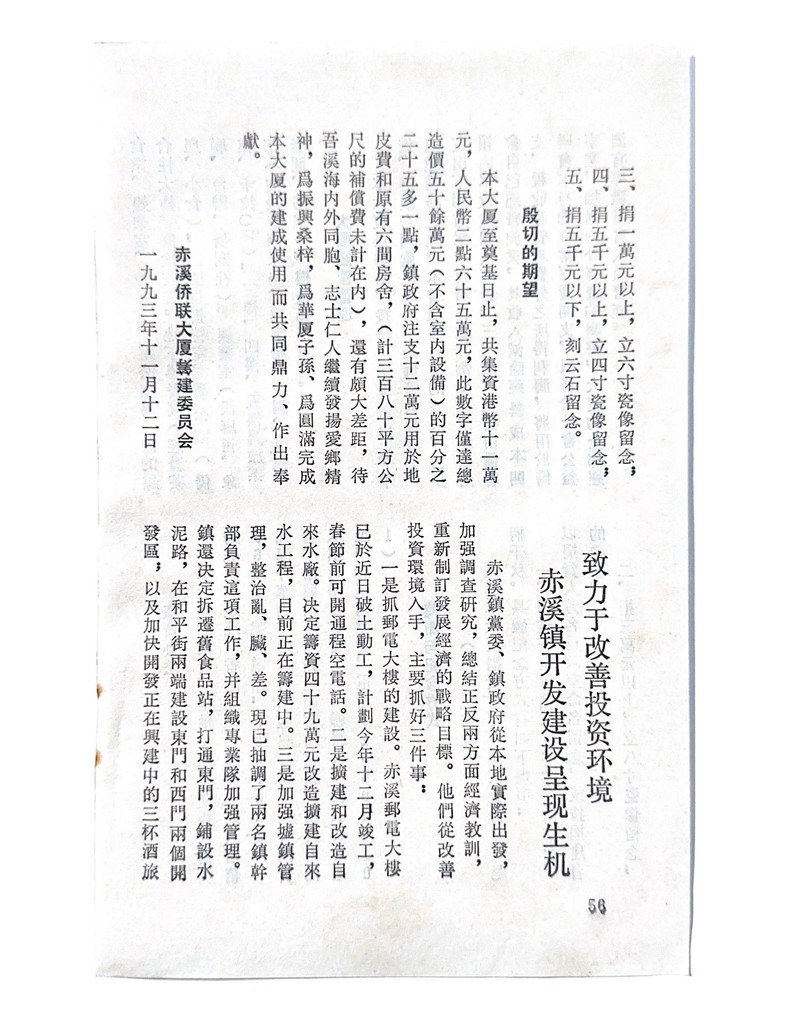 三、捐一萬元以上，立六寸瓷像留念；
四、捐五千元以上，立四寸瓷像留念；
五、捐五千元以下，刻云石留念。
殷切的期望
本大厦至奠基日止，共集資港幣十一萬
元，人民幣二點六十五萬元，此數字僅達總
造價五十餘萬元（不含室内設備）的百分之
二十五多一點，鎮政府注支十二萬元用於地
皮費和原有六間房舍，（計三百八十平方公
尺的補償費未計在内），還有頗大差距，待
吾溪海内外同胞、志士仁人繼續發揚愛鄉精
神，爲振興桑梓，爲華厦子孫、爲圓滿完成
本大厦的建成使用而共同鼎力、作出奉
獻。
赤溪侨联大厦籌建委员会
一九九三年十一月十二日
致力于改善投资环境
赤溪镇开发建设呈现生机
赤溪鎮黨委、鎮政府從本地實際出發，
加强調查研究，總結正反兩方面經濟教訓，
重新制訂發展經濟的戰略目標。他們從改善
投資環境入手，主要抓好三件事：
一是抓郵電大樓的建設。赤溪郵電大樓
已於近日破土動工，計劃今年十二月竣工，
春節前可開通程空電話。二是擴建和改造自
來水廠。决定籌資四十九萬元改造擴建自來
水工程，目前正在籌建中。三是加强墟鎮管
理，整治亂、臟、差。現已抽調了兩名鎮幹
部負責這項工作，并組織專業隊加强管理。
鎮還决定拆遷舊食品站，打通東門，鋪設水
泥路，在和平街兩端建設東門和西門兩個開
發區；以及加快開發正在興建中的三杯酒旅
56